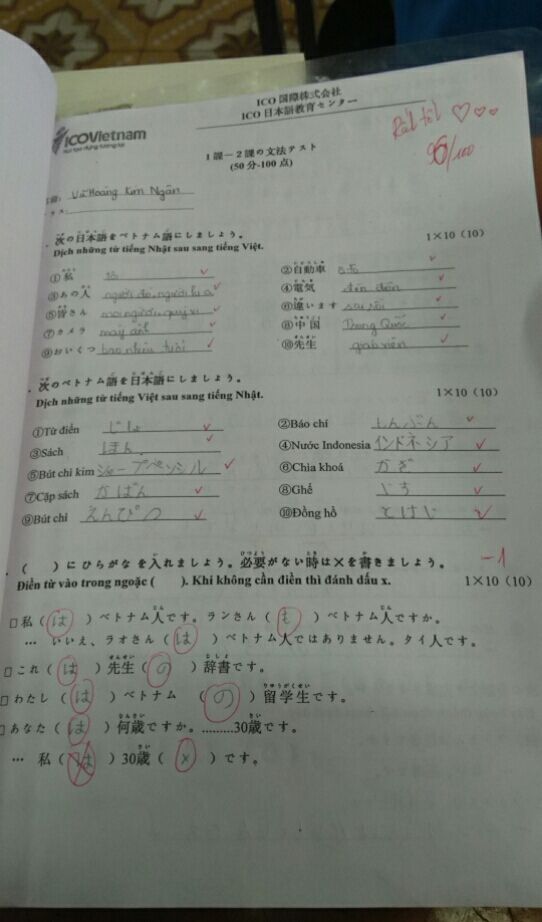 ICO 国際株式会社
ICO 日本語教育センター
ICOVietnam
Rất tốt
/100
1課－2課の文法テスト
(50分-100点)
Vũ Hoàng Kim Ngân
次の日本語をベトナム語にしましょう。 1×10 (10)
Dịch những từ tiếng Nhật sau sang tiếng Việt.
①私 ②自動車 ô tô
③あの人 người đó, người kia ④電気 đèn điện
⑤皆さん mọi người, quý vị ⑥違います sai rồi
⑦カメラ máy ảnh ⑧中国 Trung Quốc
⑨おいくつ bao nhiêu tuổi ⑩先生 giáo viên
次のベトナム語を日本語にしましょう。
Dịch những từ tiếng Việt sau sang tiếng Nhật. 1×10 (10)
①Từ điển じしょ ②Báo chí しんぶん
③Sách ほん ④Nước Indonesia インドネシア
⑤Bút chì kim シャープペンシル ⑥Chìa khoá かぎ
⑦Cặp sách かばん ⑧Ghế いす
⑨Bút chì えんぴつ ⑩Đồng hồ とけい
( )にひらがなを入れましょう。必要がない時は×を書きましょう。 -1
Điền từ vào trong ngoặc ( ). Khi không cần điền thì đánh dấu x. 1×10 (10)
□私(は)ベトナム人です。ランさん(も)ベトナム人ですか。
… いいえ、ラオさん(は)ベトナム人ではありません。タイ人です。
□これ(は)先生(の)辞書です。
□わたし(は)ベトナム (の)留学生です。
□あなた(は)何歳ですか。.........30歳です。
… 私(は)30歳(×)です。